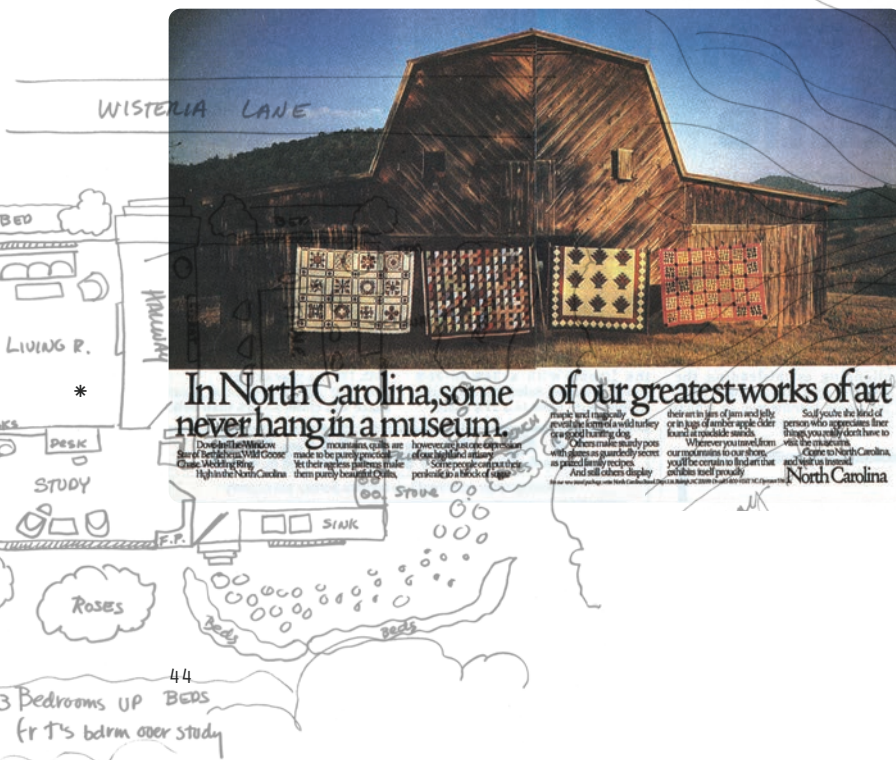 WISTERIA LANE
BED
BED
HALLWAY
LIVING R.
*
DESK
STUDY
F.P.
STOVE
SINK
ROSES
Beds
Beds
44
3 Bedrooms UP BEDS
Fr T's bdrm over study
In North Carolina, some
never hang in a museum.
of our greatest works of art
Dove-In-The-Window.
Star of Bethlehem. Wild Goose
Chase. Wedding Ring.
High in the North Carolina
mountains, quilts are
made to be purely practical.
Yet their ageless patterns make
them purely beautiful. Quilts,
however, are just one expression
of our highland artistry.
Some people can put their
penknife in a block of sugar
maple and magically
reveal the form of a wild turkey
or a good hunting dog.
Others make sturdy pots
with glazes as guardedly secret
as prized family recipes.
And still others display
their art in jars of jam and jelly,
or in jugs of amber apple cider
found at roadside stands.
Wherever you travel, from
our mountains to our shore,
you'll be certain to find art that
exhibits itself proudly.
So, if you're the kind of
person who appreciates finer
things, you really don't have to
visit the museums.
Come to North Carolina,
and visit us instead.
North Carolina